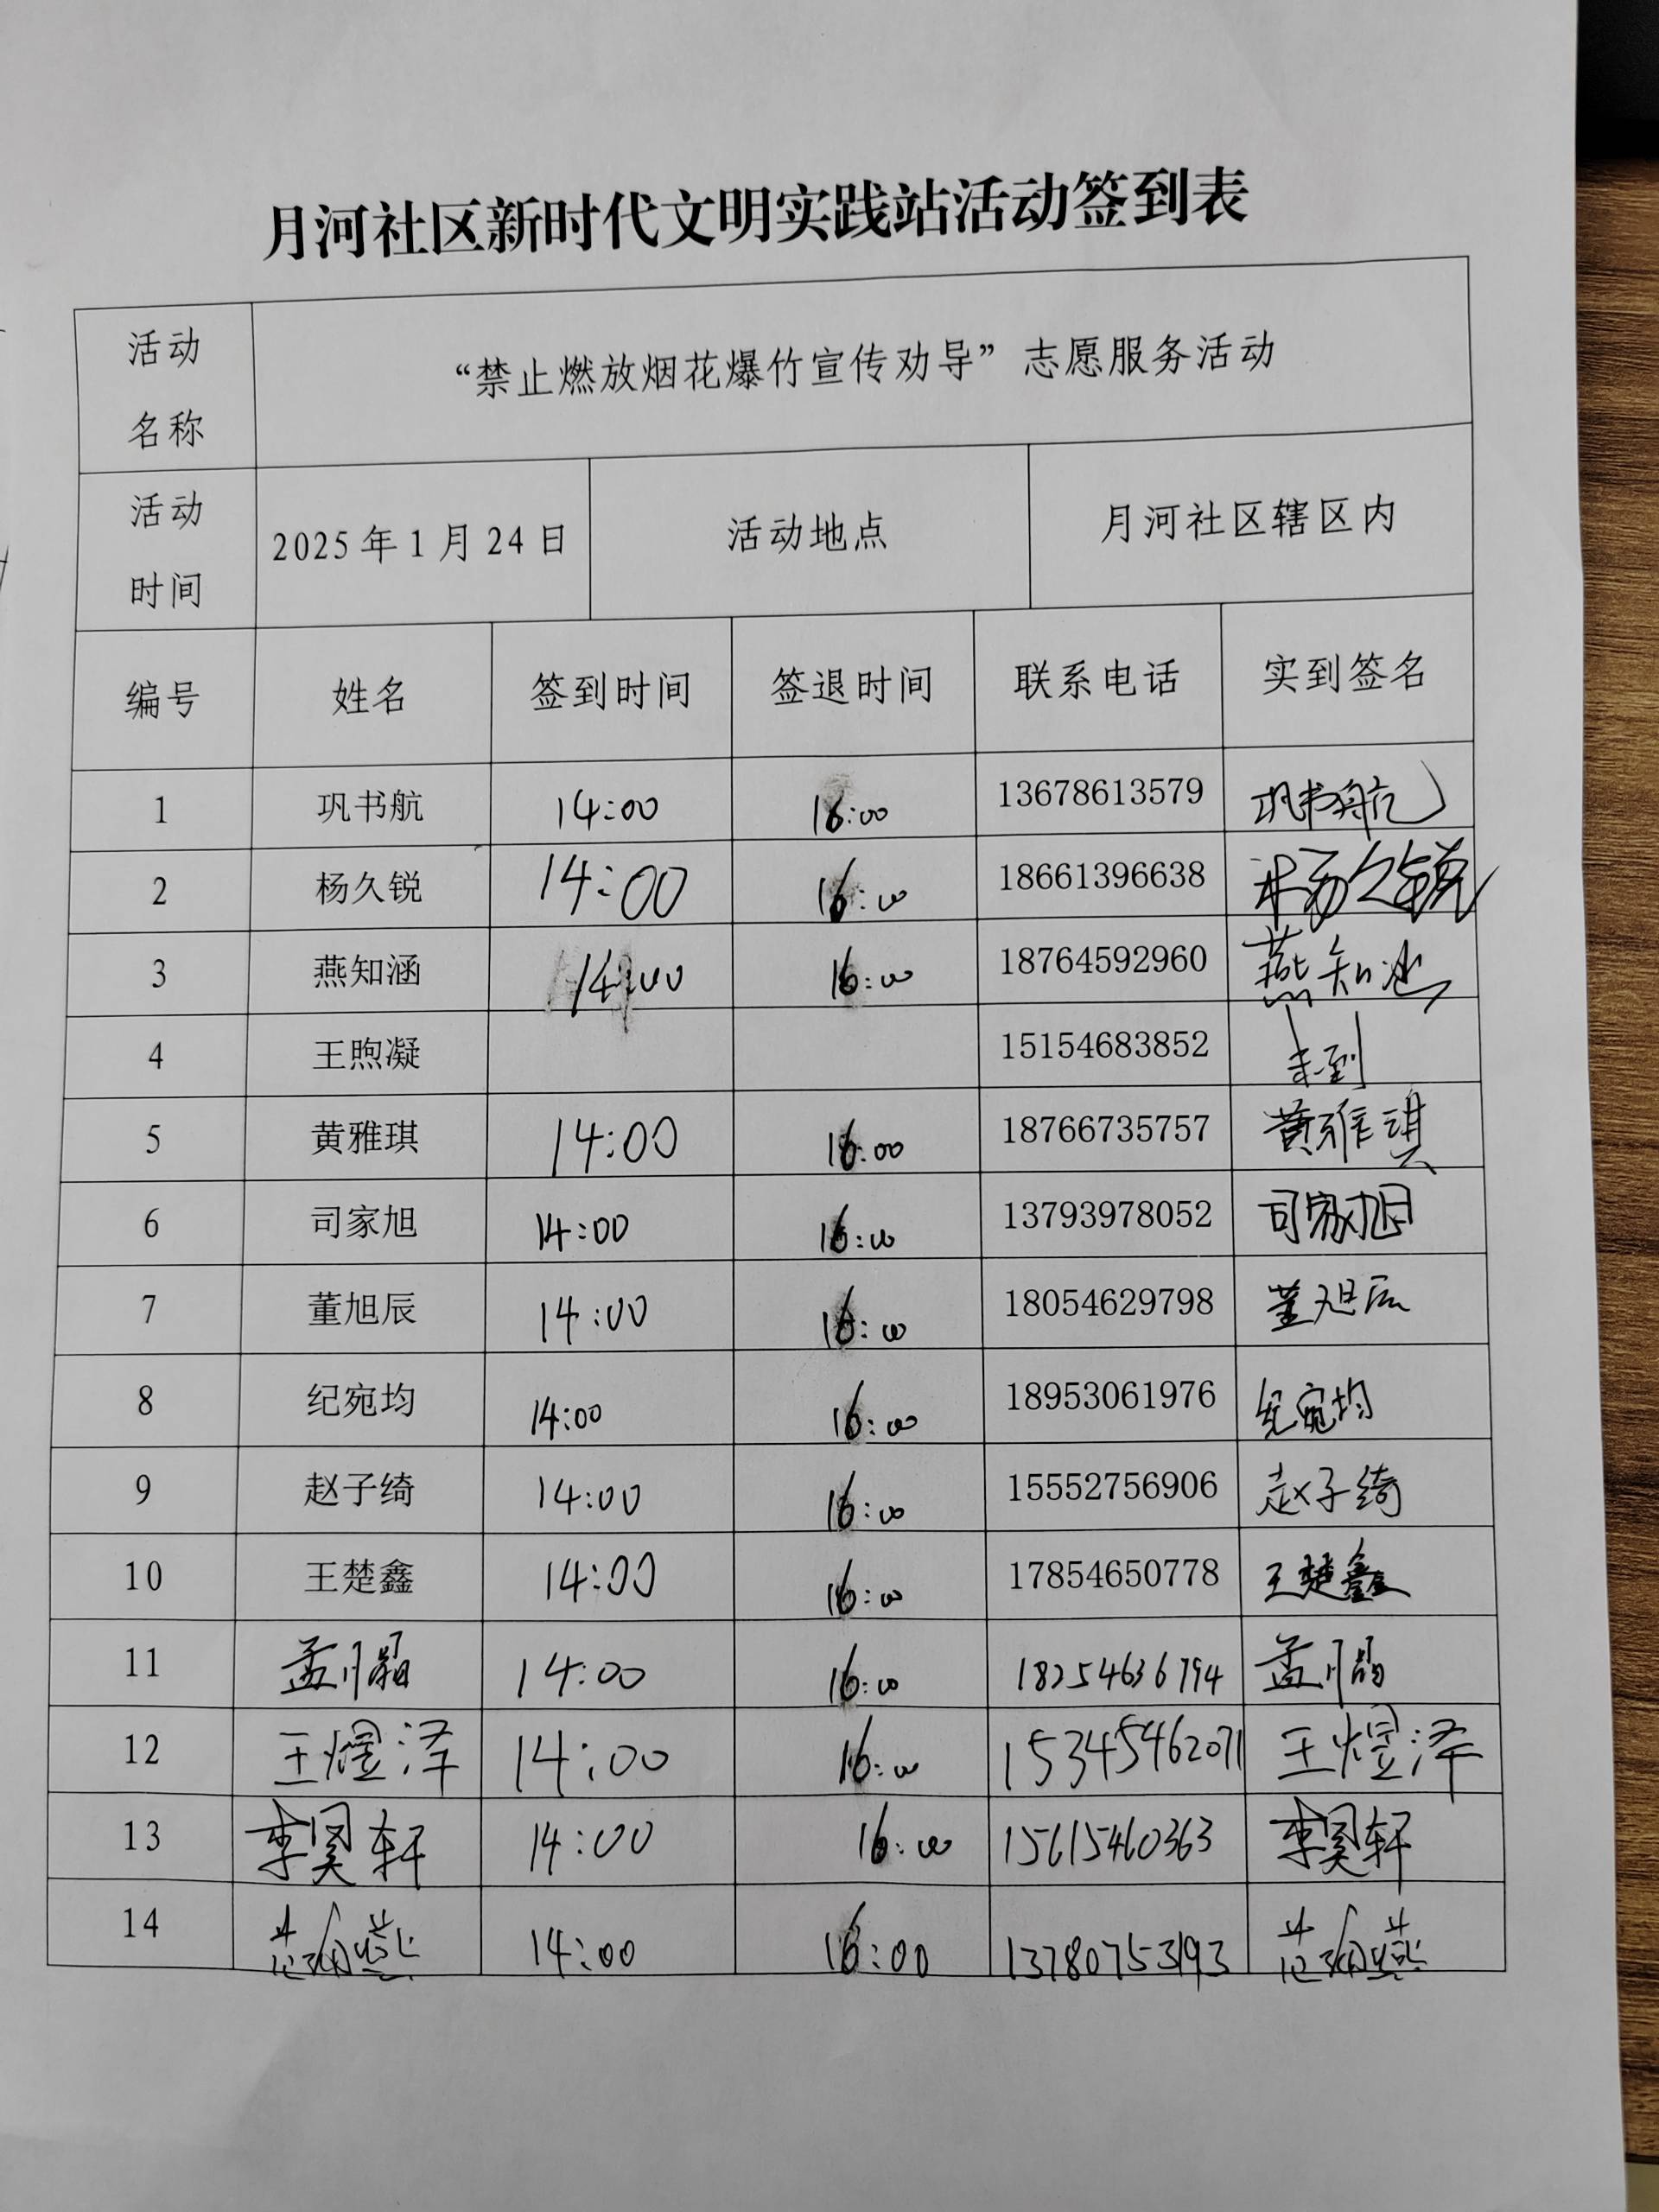 月河社区新时代文明实践站活动签到表
活动名称 “禁止燃放烟花爆竹宣传劝导”志愿服务活动
活动时间 2025年1月24日 活动地点 月河社区辖区内
编号 姓名 签到时间 签退时间 联系电话 实到签名
1 巩书航 14:00 16:00 13678613579 巩书航
2 杨久锐 14:00 16:00 18661396638 杨久锐
3 燕知涵 14:00 16:00 18764592960 燕知涵
4 王煦凝 15154683852 未到
5 黄雅琪 14:00 16:00 18766735757 黄雅琪
6 司家旭 14:00 16:00 13793978052 司家旭
7 董旭辰 14:00 16:00 18054629798 董旭辰
8 纪宛均 14:00 16:00 18953061976 纪宛均
9 赵子绮 14:00 16:00 15552756906 赵子绮
10 王楚鑫 14:00 16:00 17854650778 王楚鑫
11 孟月 14:00 16:00 18254636794 孟月
12 王煜泽 14:00 16:00 15345462071 王煜泽
13 李昊轩 14:00 16:00 15615460363 李昊轩
14 14:00 16:00 13780753193